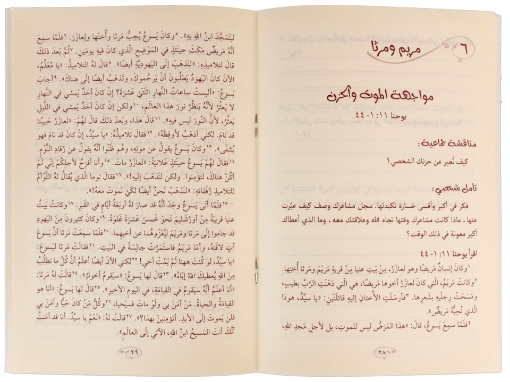 ٦ مريم ومرثا
مواجهة الموت والحزن
يوحنا ١١: ١-٤٤
مناقشة جماعية:
كيف تُعبر عن حزنك الشخصي؟
تأمل شخصي:
فكر في أكبر وأقسى خسارة تكبدتها. سجل مشاعرك وصف كيف عبَّرت
عنها، ماذا كانت مشاعرك وقتها تجاه الله وعلاقتك معه، وما الذي أعطاك
أكبر معونة في ذلك الوقت؟
اقرأ يوحنا ١١: ١-٤٤
١وَكَانَ إِنْسَانٌ مَرِيضًا وَهُوَ لِعَازَرُ، مِنْ بَيْتِ عَنْيَا مِنْ قَرْيَةِ مَرْيَمَ وَمَرْثَا أُخْتِهَا.
٢وَكَانَتْ مَرْيَمُ، الَّتِي كَانَ لِعَازَرُ أَخُوهَا مَرِيضًا، هِيَ الَّتِي دَهَنَتِ الرَّبَّ بِطِيبٍ،
وَمَسَحَتْ رِجْلَيْهِ بِشَعْرِهَا. ٣فَأَرْسَلَتِ الأُخْتَانِ إِلَيْهِ قَائِلَتَيْنِ: «يَا سَيِّدُ، هُوَذَا
الَّذِي تُحِبُّهُ مَرِيضٌ».
٤فَلَمَّا سَمِعَ يَسُوعُ، قَالَ: «هذَا الْمَرَضُ لَيْسَ لِلْمَوْتِ، بَلْ لأَجْلِ مَجْدِ اللهِ،
٢٨
لِيَتَمَجَّدَ ابْنُ اللهِ بِهِ». ٥وَكَانَ يَسُوعُ يُحِبُّ مَرْثَا وَأُخْتَهَا وَلِعَازَرَ. ٦فَلَمَّا سَمِعَ
أَنَّهُ مَرِيضٌ مَكَثَ حِينَئِذٍ فِي الْمَوْضِعِ الَّذِي كَانَ فِيهِ يَوْمَيْنِ. ٧ثُمَّ بَعْدَ ذلِكَ
قَالَ لِتَلاَمِيذِهِ: «لِنَذْهَبْ إِلَى الْيَهُودِيَّةِ أَيْضًا». ٨قَالَ لَهُ التَّلاَمِيذُ: «يَا مُعَلِّمُ،
الآنَ كَانَ الْيَهُودُ يَطْلُبُونَ أَنْ يَرْجُمُوكَ، وَتَذْهَبُ أَيْضًا إِلَى هُنَاكَ». ٩أَجَابَ
يَسُوعُ: «أَلَيْسَتْ سَاعَاتُ النَّهَارِ اثْنَتَيْ عَشْرَةَ؟ إِنْ كَانَ أَحَدٌ يَمْشِي فِي النَّهَارِ
لاَ يَعْثُرُ، لأَنَّهُ يَنْظُرُ نُورَ هذَا الْعَالَمِ، ١٠وَلكِنْ إِنْ كَانَ أَحَدٌ يَمْشِي فِي اللَّيْلِ
يَعْثُرُ، لأَنَّ النُّورَ لَيْسَ فِيهِ». ١١قَالَ هذَا، وَبَعْدَ ذلِكَ قَالَ لَهُمْ: «لِعَازَرُ حَبِيبُنَا
قَدْ نَامَ. لكِنِّي أَذْهَبُ لأُوقِظَهُ». ١٢فَقَالَ تَلاَمِيذُهُ: «يَا سَيِّدُ، إِنْ كَانَ قَدْ نَامَ فَهُوَ
يُشْفَى». ١٣وَكَانَ يَسُوعُ يَقُولُ عَنْ مَوْتِهِ، وَهُمْ ظَنُّوا أَنَّهُ يَقُولُ عَنْ رُقَادِ النَّوْمِ.
١٤فَقَالَ لَهُمْ يَسُوعُ حِينَئِذٍ عَلاَنِيَةً: «لِعَازَرُ مَاتَ. ١٥وَأَنَا أَفْرَحُ لأَجْلِكُمْ إِنِّي لَمْ
أَكُنْ هُنَاكَ، لِتُؤْمِنُوا. وَلكِنْ لِنَذْهَبْ إِلَيْهِ!» ١٦فَقَالَ تُومَا الَّذِي يُقَالُ لَهُ التَّوْأَمُ
لِلتَّلاَمِيذِ رُفَقَائِهِ: «لِنَذْهَبْ نَحْنُ أَيْضًا لِكَيْ نَمُوتَ مَعَهُ!».
١٧فَلَمَّا أَتَى يَسُوعُ وَجَدَ أَنَّهُ قَدْ صَارَ لَهُ أَرْبَعَةُ أَيَّامٍ فِي الْقَبْرِ. ١٨وَكَانَتْ بَيْتُ
عَنْيَا قَرِيبَةً مِنْ أُورُشَلِيمَ نَحْوَ خَمْسَ عَشْرَةَ غَلْوَةً. ١٩وَكَانَ كَثِيرُونَ مِنَ الْيَهُودِ
قَدْ جَاءُوا إِلَى مَرْثَا وَمَرْيَمَ لِيُعَزُّوهُمَا عَنْ أَخِيهِمَا. ٢٠فَلَمَّا سَمِعَتْ مَرْثَا أَنَّ يَسُوعَ
آتٍ لاَقَتْهُ، وَأَمَّا مَرْيَمُ فَاسْتَمَرَّتْ جَالِسَةً فِي الْبَيْتِ. ٢١فَقَالَتْ مَرْثَا لِيَسُوعَ:
«يَا سَيِّدُ، لَوْ كُنْتَ ههُنَا لَمْ يَمُتْ أَخِي! ٢٢لكِنِّي الآنَ أَيْضًا أَعْلَمُ أَنَّ كُلَّ مَا تَطْلُبُ
مِنَ اللهِ يُعْطِيكَ اللهُ إِيَّاهُ». ٢٣قَالَ لَهَا يَسُوعُ: «سَيَقُومُ أَخُوكِ». ٢٤قَالَتْ لَهُ مَرْثَا:
«أَنَا أَعْلَمُ أَنَّهُ سَيَقُومُ فِي الْقِيَامَةِ، فِي الْيَوْمِ الأَخِيرِ». ٢٥قَالَ لَهَا يَسُوعُ: «أَنَا هُوَ
الْقِيَامَةُ وَالْحَيَاةُ. مَنْ آمَنَ بِي وَلَوْ مَاتَ فَسَيَحْيَا، ٢٦وَكُلُّ مَنْ كَانَ حَيًّا وَآمَنَ بِي
فَلَنْ يَمُوتَ إِلَى الأَبَدِ. أَتُؤْمِنِينَ بِهذَا؟» ٢٧قَالَتْ لَهُ: «نَعَمْ يَا سَيِّدُ. أَنَا قَدْ آمَنْتُ
أَنَّكَ أَنْتَ الْمَسِيحُ ابْنُ اللهِ، الآتِي إِلَى الْعَالَمِ».
٢٩